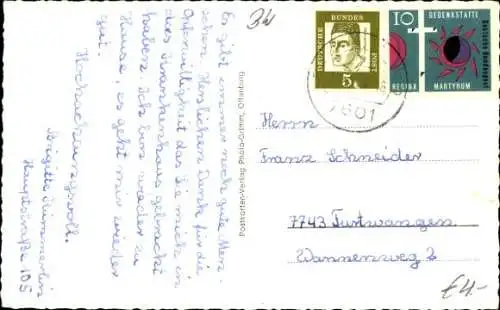 32
Es gibt immer noch gute Men-
schen. Herzlichen Dank für die
Opferwilligkeit das Sie mich in
das Krankenhaus gebracht
haben. Ich bin wieder zu
Hause, es geht mir wieder
gut.
Hochachtungsvoll.
Brigitte
Hauptstraße 105
Postkarten-Verlag Photo-Grimm, Offenburg
DEUTSCHE BUNDES POST
5
10
REGINA MARTYRUM
GEDENKSTÄTTE
Deutsche Bundespost
7601
Herrn
Franz Schneider
7743 Furtwangen
Wannenweg 2
€4-